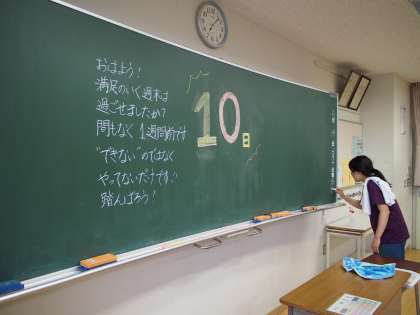 おはよう！
満足のいく週末は
過ごせましたか？
間もなく1週間前です
"できない"のではなく
やってないだけです。
踏んばろう！
10